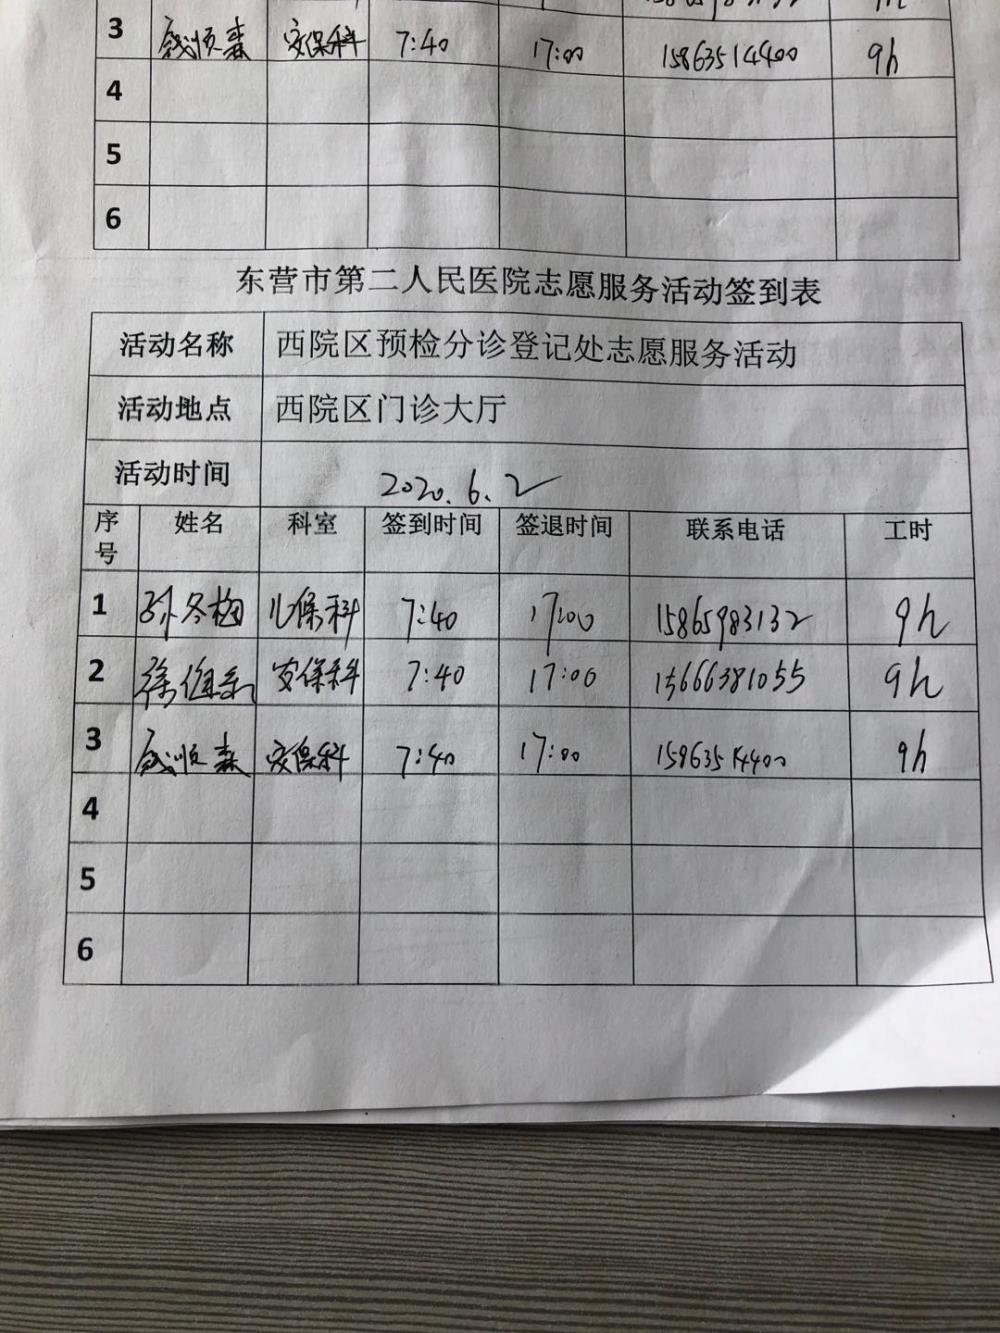 3 安保科 7:40 17:00 15863514400 9h
4
5
6
东营市第二人民医院志愿服务活动签到表
活动名称 西院区预检分诊登记处志愿服务活动
活动地点 西院区门诊大厅
活动时间 2020.6.2
序号 姓名 科室 签到时间 签退时间 联系电话 工时
1 孙冬梅 儿保科 7:40 17:00 15865983132 9h
2 安保科 7:40 17:00 15666381055 9h
3 安保科 7:40 17:00 15863514400 9h
4
5
6